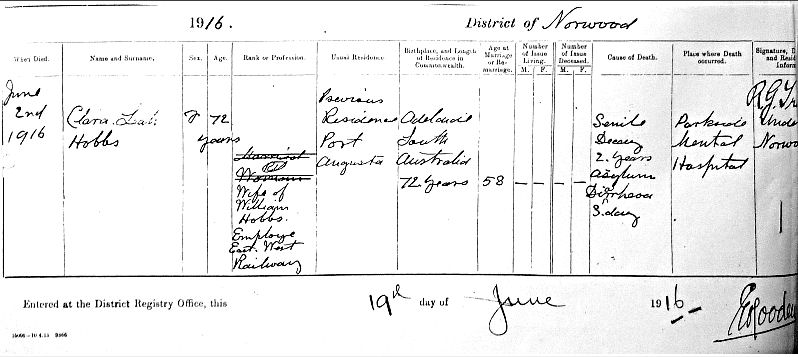 1916.
District of Norwood
When Died.
Name and Surname.
Sex.
Age.
Rank or Profession.
Usual Residence.
Birthplace, and Length
of Residence in
Commonwealth.
Age at
Marriage
or Re-
marriage.
Number
of Issue
Living.
M. F.
Number
of Issue
Deceased.
M. F.
Cause of Death.
Place where Death
occurred.
Signature, D
and Resid
Inform
June
2nd
1916
Clara
Hobbs
72
years
Married
Woman
Wife of
William
Hobbs.
Employe
East. West
Railway
Previous
Residence
Port
Augusta
Adelaide
South
Australia
72 Years
58
– – – –
Senile
Decay
2. Years
Asylum
Diarrhoea
3. day
Parkside
Mental
Hospital
R.G.
Unde
Norwo
Entered at the District Registry Office, this 19th day of June 1916
15066—10.4.15 B966